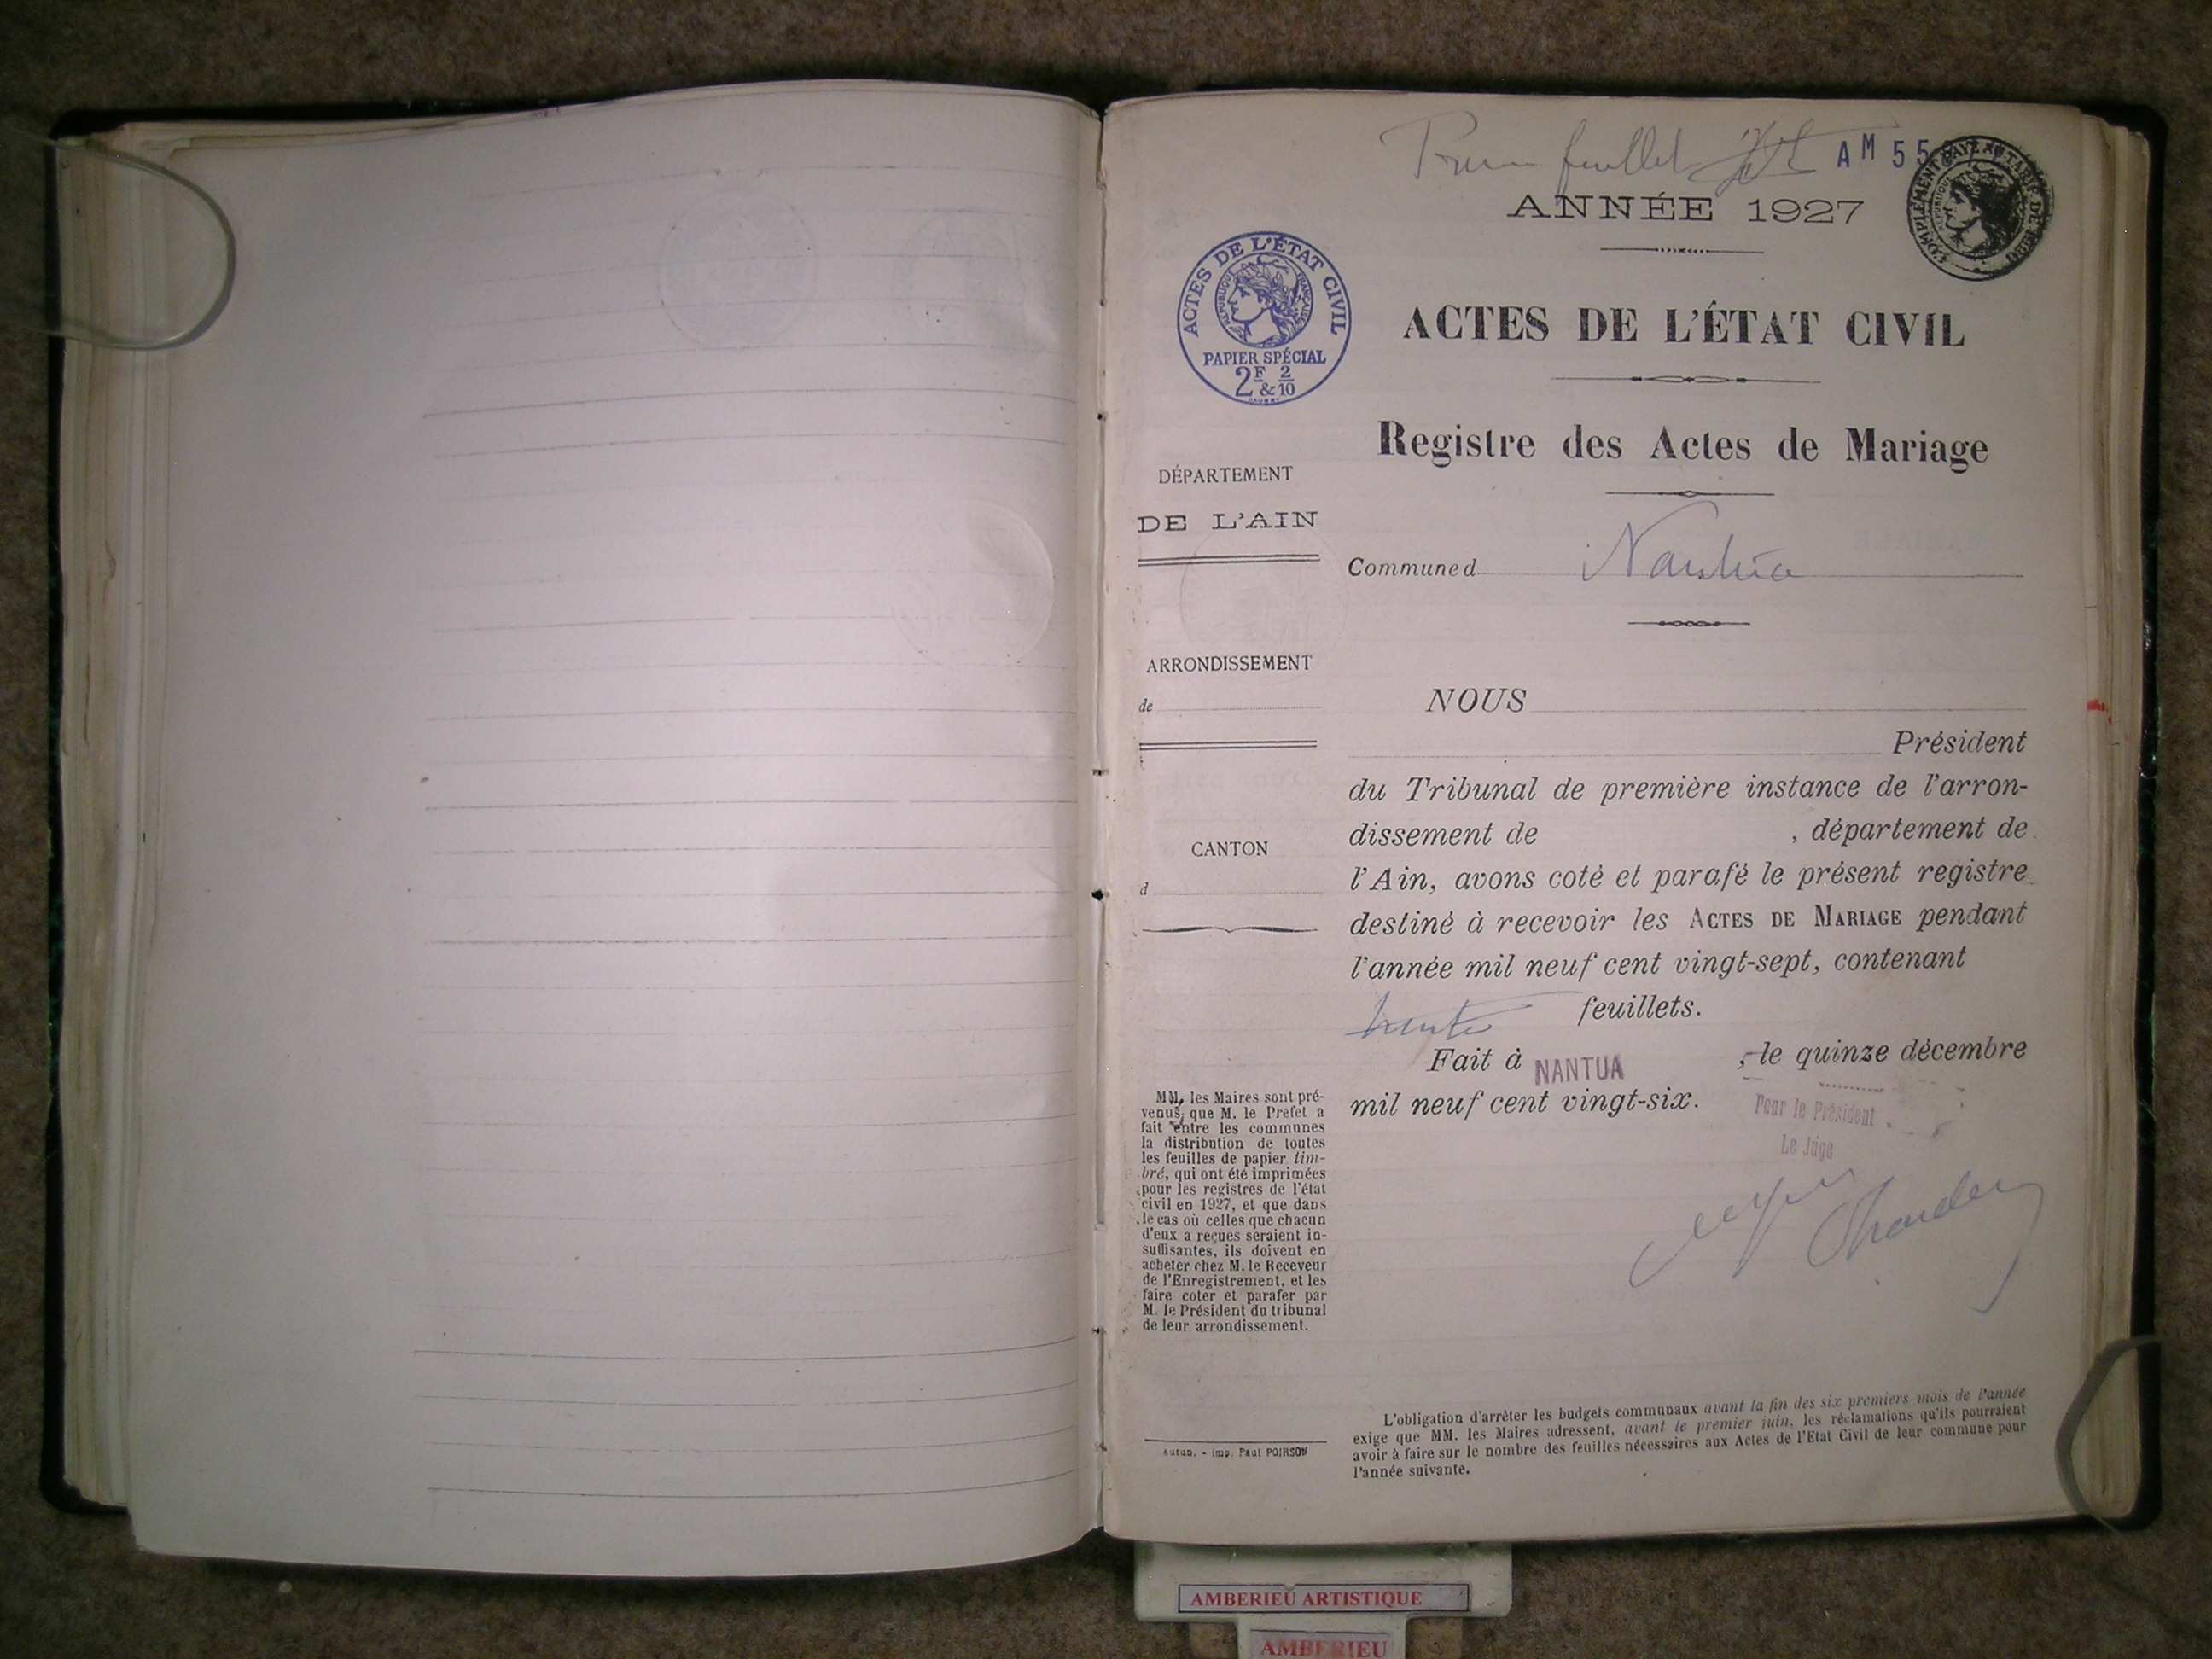 feuillet
AM 55
COMPLÉMENT PAYÉ AU TARIF DE
ANNÉE 1927
ACTES DE L'ÉTAT CIVIL
RÉPUBLIQUE FRANÇAISE
PAPIER SPÉCIAL
2F & 2/10
ACTES DE L'ÉTAT CIVIL
Registre des Actes de Mariage
DÉPARTEMENT
DE L'AIN
Commune d Nantua
ARRONDISSEMENT
de
CANTON
d
NOUS
Président
du Tribunal de première instance de l'arron-
dissement de , département de
l'Ain, avons coté et parafé le présent registre
destiné à recevoir les ACTES DE MARIAGE pendant
l'année mil neuf cent vingt-sept, contenant
trente feuillets.
Fait à NANTUA , le quinze décembre
mil neuf cent vingt-six.
Pour le Président
Le Juge
MM. les Maires sont pré-
venus que M. le Préfet a
fait entre les communes
la distribution de toutes
les feuilles de papier tim-
bré, qui ont été imprimées
pour les registres de l'état
civil en 1927, et que dans
le cas où celles que chacun
d'eux a reçues seraient in-
suffisantes, ils doivent en
acheter chez M. le Receveur
de l'Enregistrement, et les
faire coter et parafer par
M. le Président du tribunal
de leur arrondissement.
Autun. - Imp. Paul POIRSON
L'obligation d'arrêter les budgets communaux avant la fin des six premiers mois de l'année
exige que MM. les Maires adressent, avant le premier juin, les réclamations qu'ils pourraient
avoir à faire sur le nombre des feuilles nécessaires aux Actes de l'Etat Civil de leur commune pour
l'année suivante.
AMBERIEU ARTISTIQUE
AMBERIEU